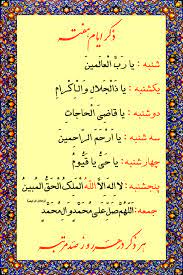 ذکر ایام هفته
شنبه : یا رَبَّ الْعالَمین
یکشنبه : یا ذَالْجَلالِ وَالْاِکْرام
دوشنبه : یا قاضِیَ الْحاجات
سه شنبه : یا اَرْحَمَ الرّاحِمین
چهارشنبه : یا حَیُّ یا قَیُّومُ
پنجشنبه : لا اِلهَ اِلَّا اللهُ الْمَلِکُ الْحَقُّ الْمُبین
جمعه : اَللّهُمَّ صَلِّ عَلی مُحَمَّدٍ وَ آلِ مُحَمَّدٍ
هر ذکر در هر روز صد مرتبه